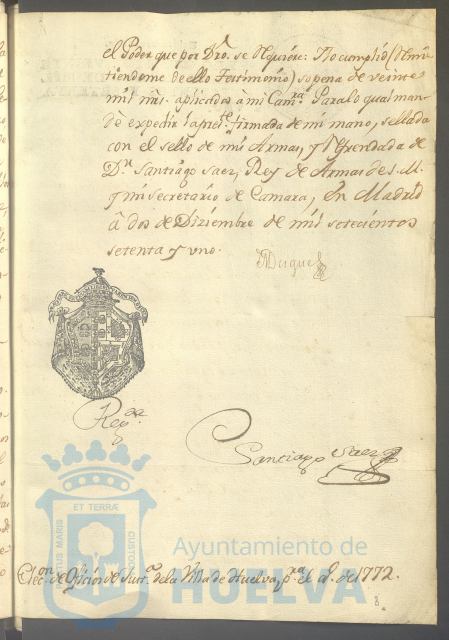 el Poder que por Dro. se requiere: Y lo cumplió (Remi-
tiendome de ello Testimonio) so pena de veinte
mil mrs. aplicados à mi Camra. Para lo qual man-
dè expedir la preste. firmada de mi mano, sellada
con el sello de mis Armas, y Refrendada de
Dn. Santiago Saez, Rey de Armas de S. M.
y mi Secretario de Camara, en Madrid
à dos de Diziembre de mil setecientos
setenta y uno.
Duque
Rega.
Santiago Saez
ET TERRÆ
PORTUS MARIS
CUSTODIA
Ayuntamiento de
HUELVA
Eleccon. de Oficios de Justa. de la Villa de Huelva, pra. el aº. de 1772.